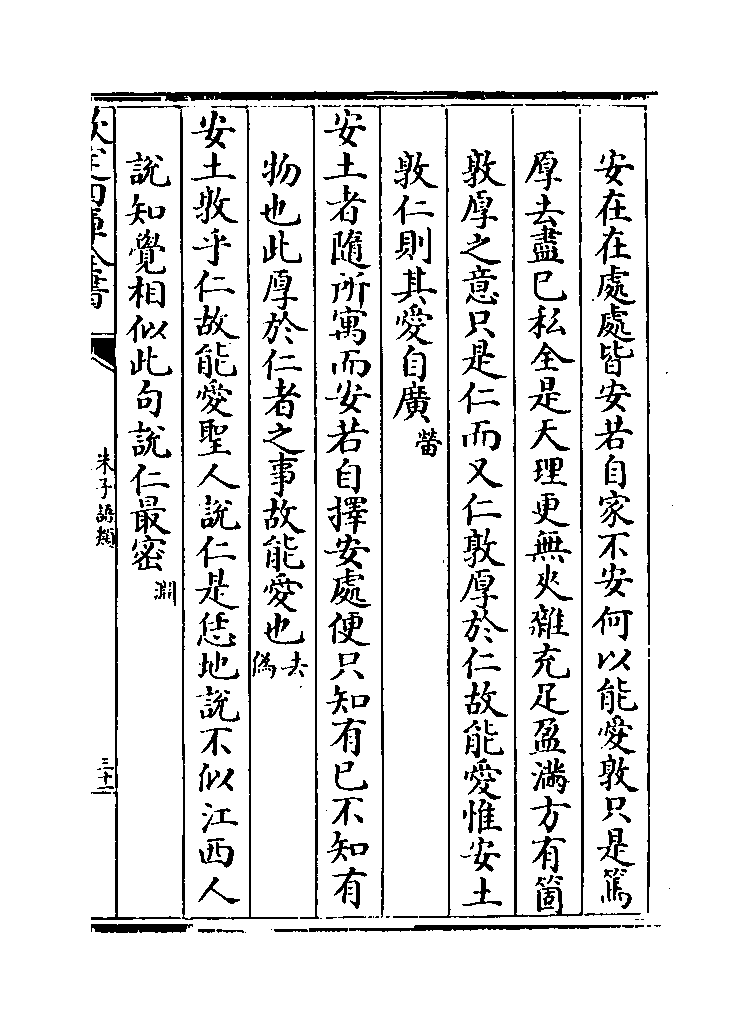 安在在處處皆安若自家不安何以能愛敦只是篤
厚去盡已私全是天理更無夾雜充足盈滿方有箇
敦厚之意只是仁而又仁敦厚於仁故能愛惟安土
敦仁則其愛自廣𦶜
安土者隨所寓而安若自擇安處便只知有已不知有
物也此厚於仁者之事故能愛也去偽
安土敦乎仁故能愛聖人說仁是恁地說不似江西人
說知覺相似此句說仁最密淵
欽定四庫全書
朱子語類
三十二